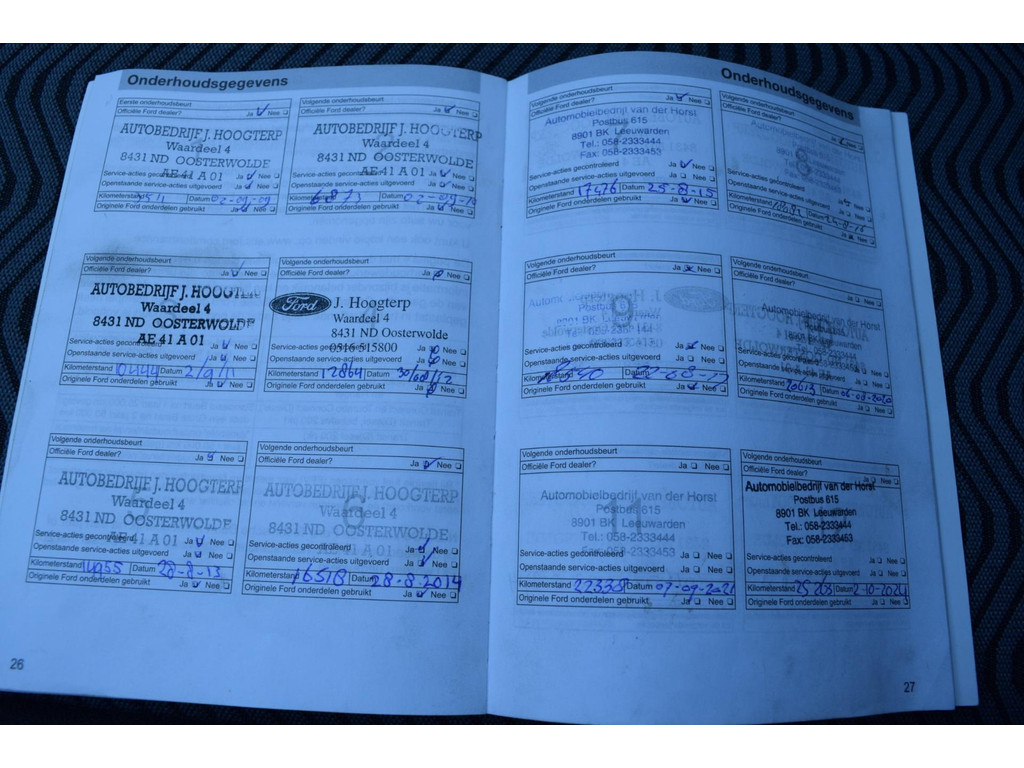 Onderhoudsgegevens
Eerste onderhoudsbeurt
Officiële Ford dealer? Ja Nee
AUTOBEDRIJF J. HOOGTERP
Waardeel 4
8431 ND OOSTERWOLDE
AE 41 A 01
Service-acties gecontroleerd Ja Nee
Openstaande service-acties uitgevoerd Ja Nee
Kilometerstand Datum 02-09-09
Originele Ford onderdelen gebruikt Ja Nee
Volgende onderhoudsbeurt
Officiële Ford dealer? Ja Nee
AUTOBEDRIJF J. HOOGTERP
Waardeel 4
8431 ND OOSTERWOLDE
AE 41 A 01
Service-acties gecontroleerd Ja Nee
Openstaande service-acties uitgevoerd Ja Nee
Kilometerstand Datum 02-09-10
Originele Ford onderdelen gebruikt Ja Nee
Volgende onderhoudsbeurt
Officiële Ford dealer? Ja Nee
AUTOBEDRIJF J. HOOGTERP
Waardeel 4
8431 ND OOSTERWOLDE
AE 41 A 01
Service-acties gecontroleerd Ja Nee
Openstaande service-acties uitgevoerd Ja Nee
Kilometerstand 10444 Datum 2/9/11
Originele Ford onderdelen gebruikt Ja Nee
Volgende onderhoudsbeurt
Officiële Ford dealer? Ja Nee
Ford J. Hoogterp
Waardeel 4
8431 ND Oosterwolde
0516-515800
Service-acties gecontroleerd Ja Nee
Openstaande service-acties uitgevoerd Ja Nee
Kilometerstand 12864 Datum 30/08/12
Originele Ford onderdelen gebruikt Ja Nee
Volgende onderhoudsbeurt
Officiële Ford dealer? Ja Nee
AUTOBEDRIJF J. HOOGTERP
Waardeel 4
8431 ND OOSTERWOLDE
AE 41 A 01
Service-acties gecontroleerd Ja Nee
Openstaande service-acties uitgevoerd Ja Nee
Kilometerstand 14955 Datum 28-8-13
Originele Ford onderdelen gebruikt Ja Nee
Volgende onderhoudsbeurt
Officiële Ford dealer? Ja Nee
AUTOBEDRIJF J. HOOGTERP
Waardeel 4
8431 ND OOSTERWOLDE
AE 41 A 01
Service-acties gecontroleerd Ja Nee
Openstaande service-acties uitgevoerd Ja Nee
Kilometerstand 16518 Datum 28.8.2014
Originele Ford onderdelen gebruikt Ja Nee
26
Onderhoudsgegevens
Volgende onderhoudsbeurt
Officiële Ford dealer? Ja Nee
Automobielbedrijf van der Horst
Postbus 615
8901 BK Leeuwarden
Tel.: 058-2333444
Fax: 058-2333453
Service-acties gecontroleerd Ja Nee
Openstaande service-acties uitgevoerd Ja Nee
Kilometerstand 17476 Datum 25-8-15
Originele Ford onderdelen gebruikt Ja Nee
Volgende onderhoudsbeurt
Officiële Ford dealer?
Service-acties gecontroleerd
Openstaande service-acties uitgevoerd
Kilometerstand Datum
Originele Ford onderdelen gebruikt Ja Nee
Volgende onderhoudsbeurt
Officiële Ford dealer? Ja Nee
Service-acties gecontroleerd Ja Nee
Openstaande service-acties uitgevoerd Ja Nee
Kilometerstand Datum
Originele Ford onderdelen gebruikt Ja Nee
Volgende onderhoudsbeurt
Officiële Ford dealer? Ja Nee
Automobielbedrijf van der Horst
Service-acties gecontroleerd Ja Nee
Openstaande service-acties uitgevoerd Ja Nee
Kilometerstand 20613 Datum 06-08-2020
Originele Ford onderdelen gebruikt Ja Nee
Volgende onderhoudsbeurt
Officiële Ford dealer? Ja Nee
Automobielbedrijf van der Horst
Postbus 615
8901 BK Leeuwarden
Tel.: 058-2333444
Fax: 058-2333453
Service-acties gecontroleerd Ja Nee
Openstaande service-acties uitgevoerd Ja Nee
Kilometerstand 22338 Datum 07-09-2021
Originele Ford onderdelen gebruikt Ja Nee
Volgende onderhoudsbeurt
Officiële Ford dealer? Ja Nee
Automobielbedrijf van der Horst
Postbus 615
8901 BK Leeuwarden
Tel.: 058-2333444
Fax: 058-2333453
Service-acties gecontroleerd Ja Nee
Openstaande service-acties uitgevoerd Ja Nee
Kilometerstand Datum 2-10-2024
Originele Ford onderdelen gebruikt Ja Nee
27